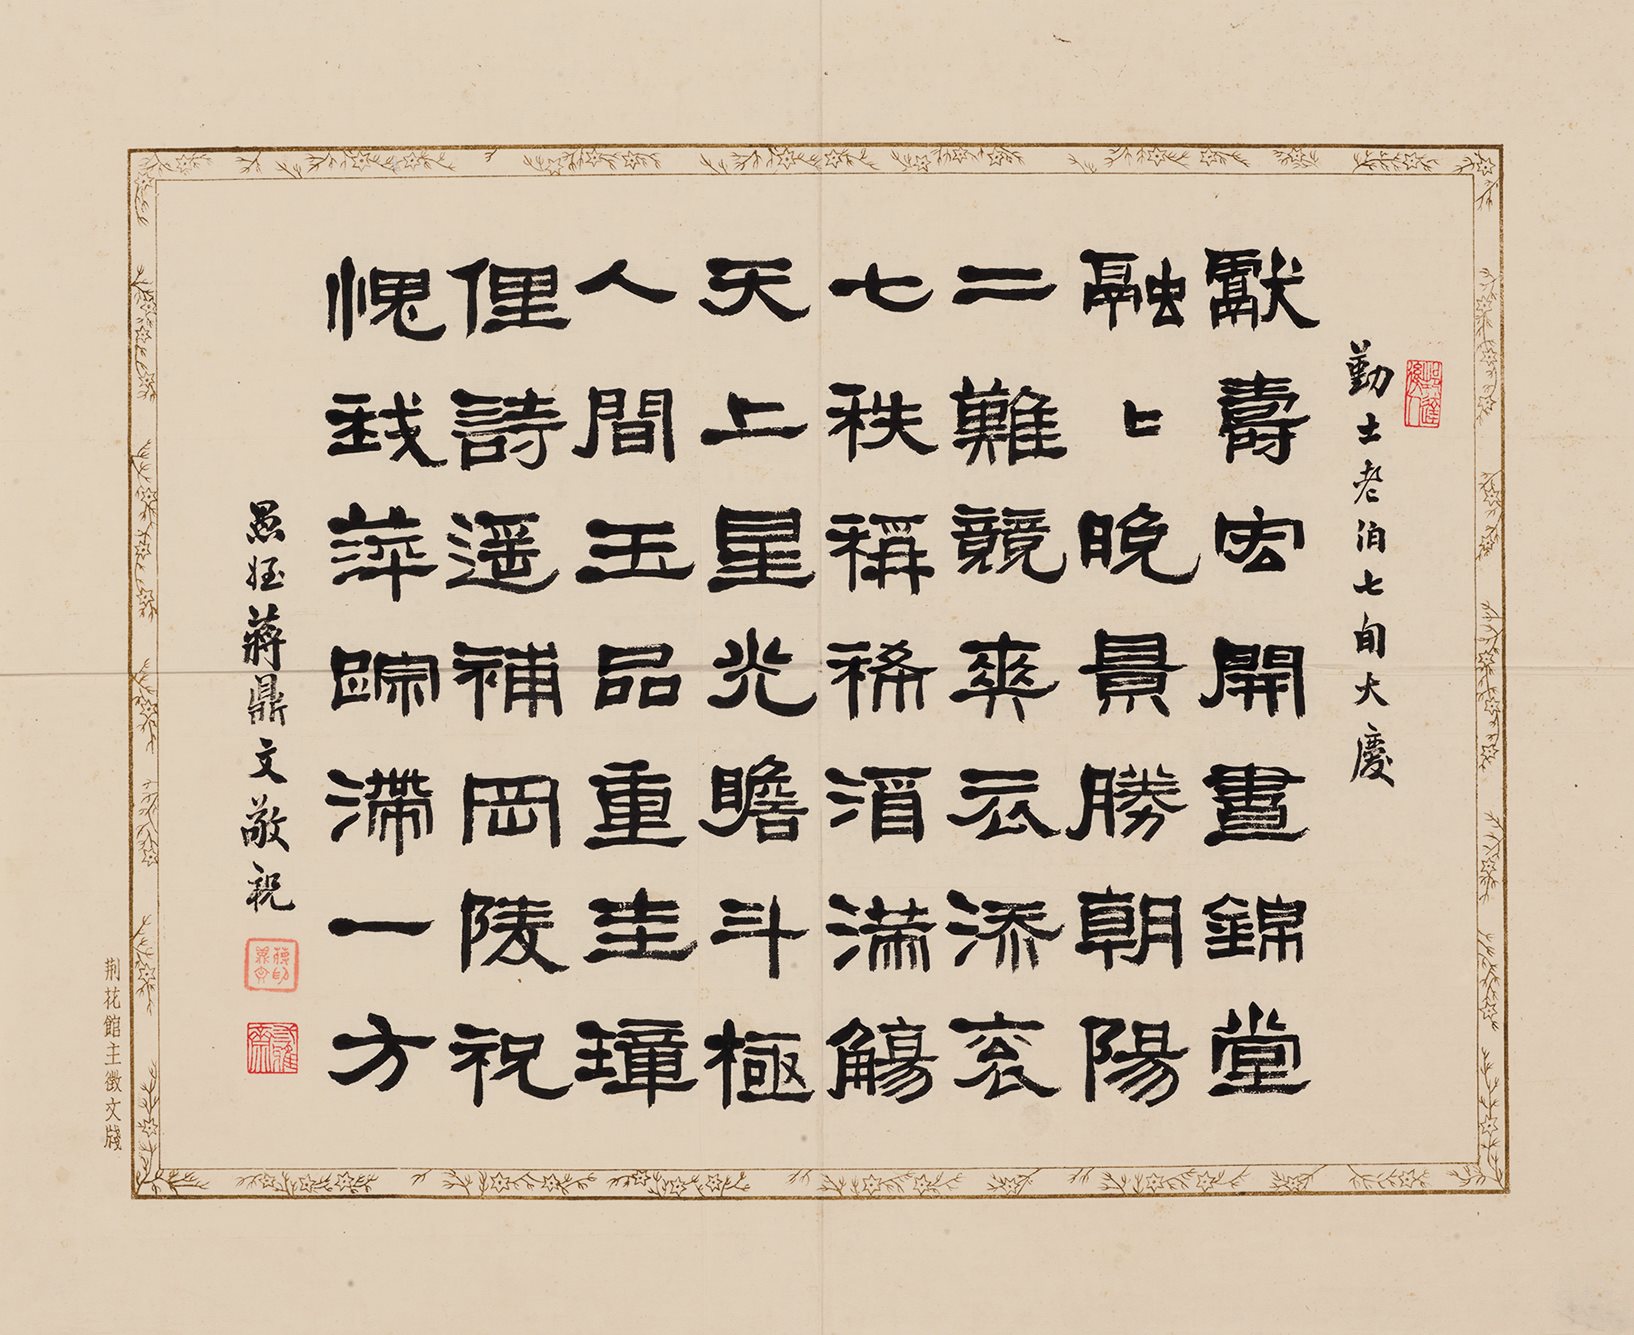 勤士老伯七旬大慶
獻壽宏開晝錦堂
融〻晚景勝朝陽
二難競爽云添衮
七秩稱稀酒滿觴
天上星光瞻斗極
人間玉品重圭璋
俚詩遥補岡陵祝
愧我萍踪滯一方
愚姪蔣鼎文敬祝
荆花館主徵文牋